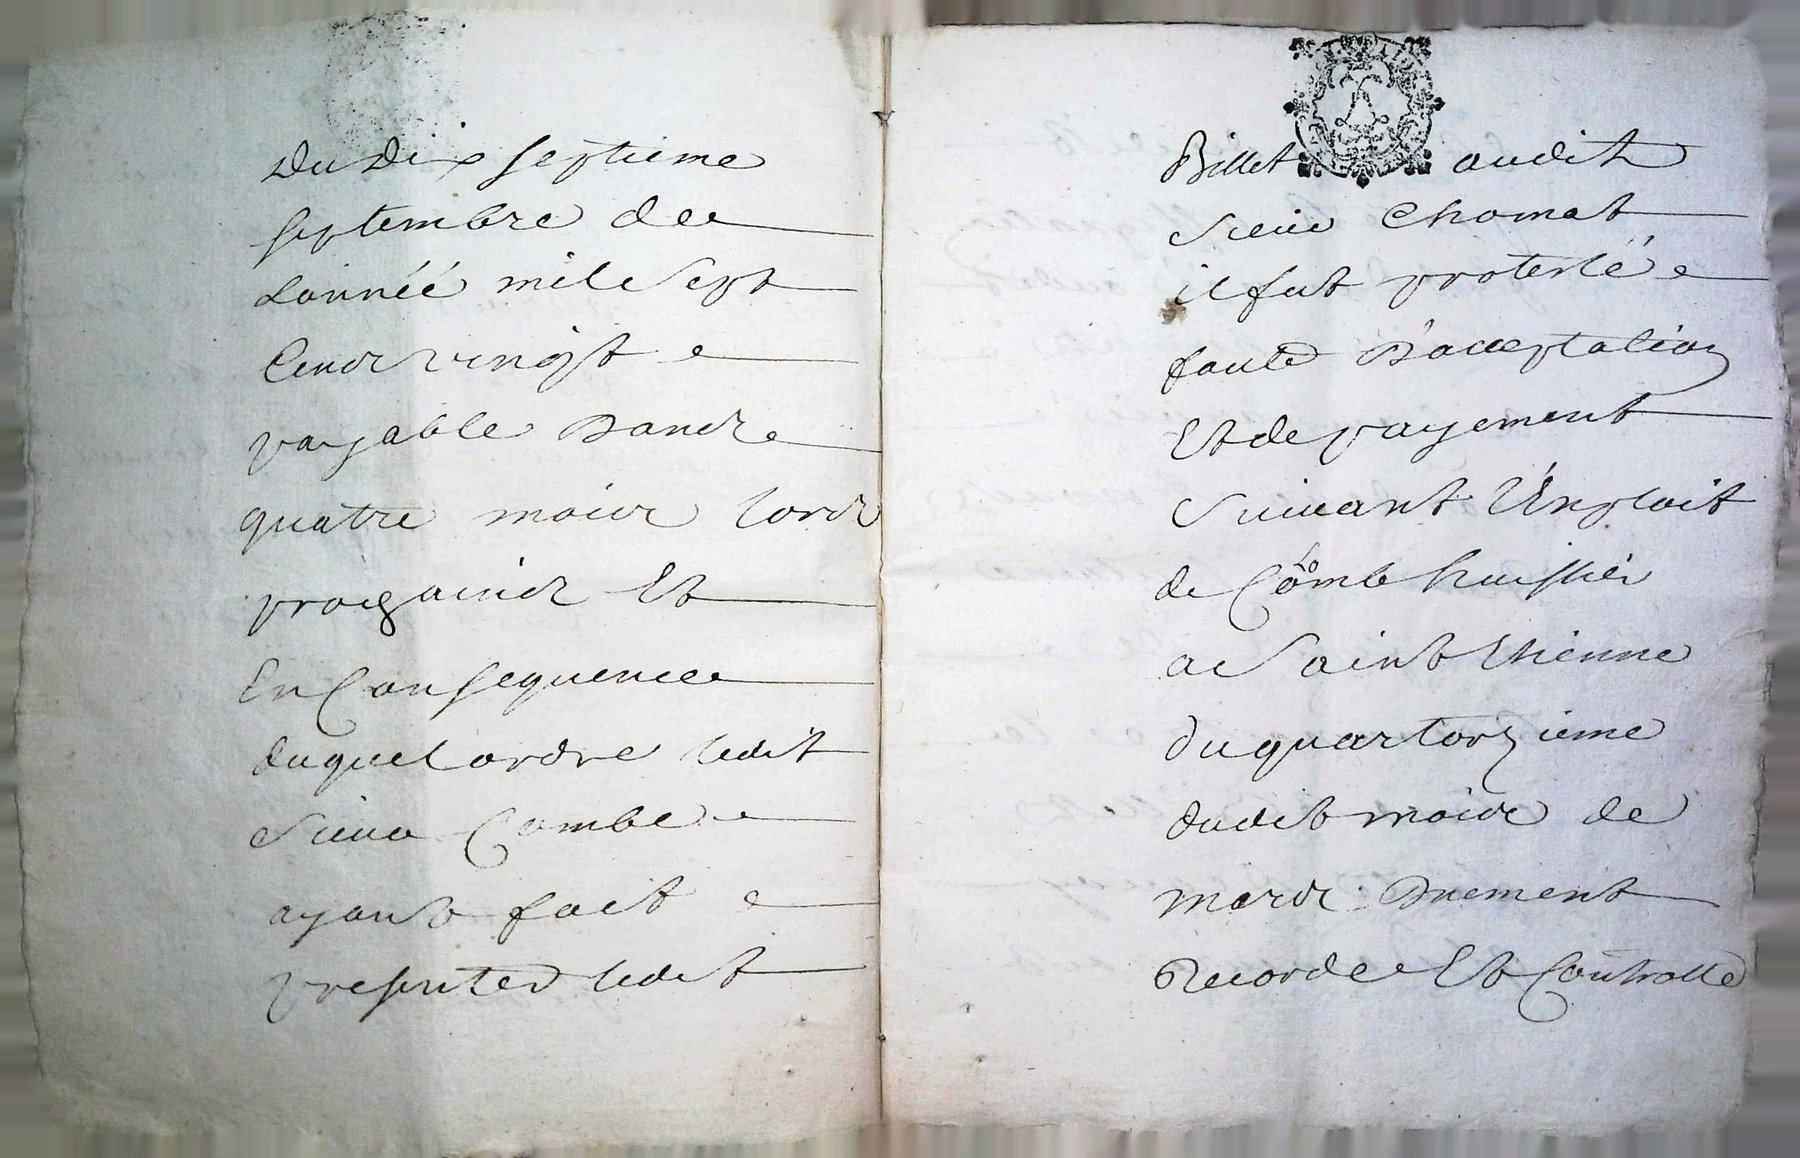 Du Dix septieme
septembre de
Lannéé mil Sept
Cens vingt
payable Dans
quatre mois lors
prochains Et
En Consequence
duquel ordre ledit
Sieur Combe
ayant fait
presenter ledit
Billet audit
Sieur Chomat
il fut protesté
faute D'acceptation
Et de payement
Suivant l'Exploit
de Combe huissier
a Saint Etienne
du quartorzieme
dudit mois de
mars Duement
Recorde Et Controllé